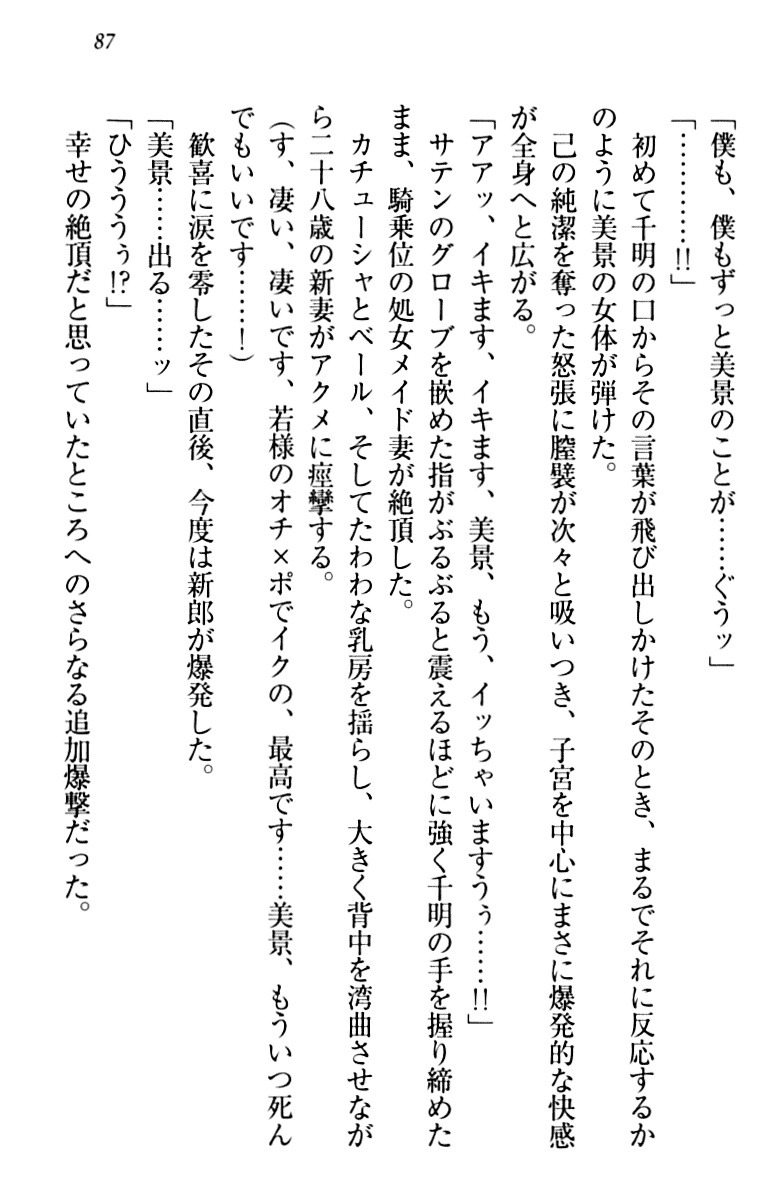 87
「僕も、僕もずっと美景のことが……ぐうッ」
「…………!!」
初めて千明の口からその言葉が飛び出しかけたそのとき、まるでそれに反応するか
のように美景の女体が弾けた。
己の純潔を奪った怒張に膣襞が次々と吸いつき、子宮を中心にまさに爆発的な快感
が全身へと広がる。
「アアッ、イキます、イキます、美景、もう、イッちゃいますうぅ……!!」
サテンのグローブを嵌めた指がぶるぶると震えるほどに強く千明の手を握り締めた
まま、騎乗位の処女メイド妻が絶頂した。
カチューシャとベール、そしてたわわな乳房を揺らし、大きく背中を湾曲させなが
ら二十八歳の新妻がアクメに痙攣する。
(す、凄い、凄いです、若様のオチ×ポでイクの、最高です……美景、もういつ死ん
でもいいです……!)
歓喜に涙を零したその直後、今度は新郎が爆発した。
「美景……出る……ッ」
「ひうううぅ!?」
幸せの絶頂だと思っていたところへのさらなる追加爆撃だった。